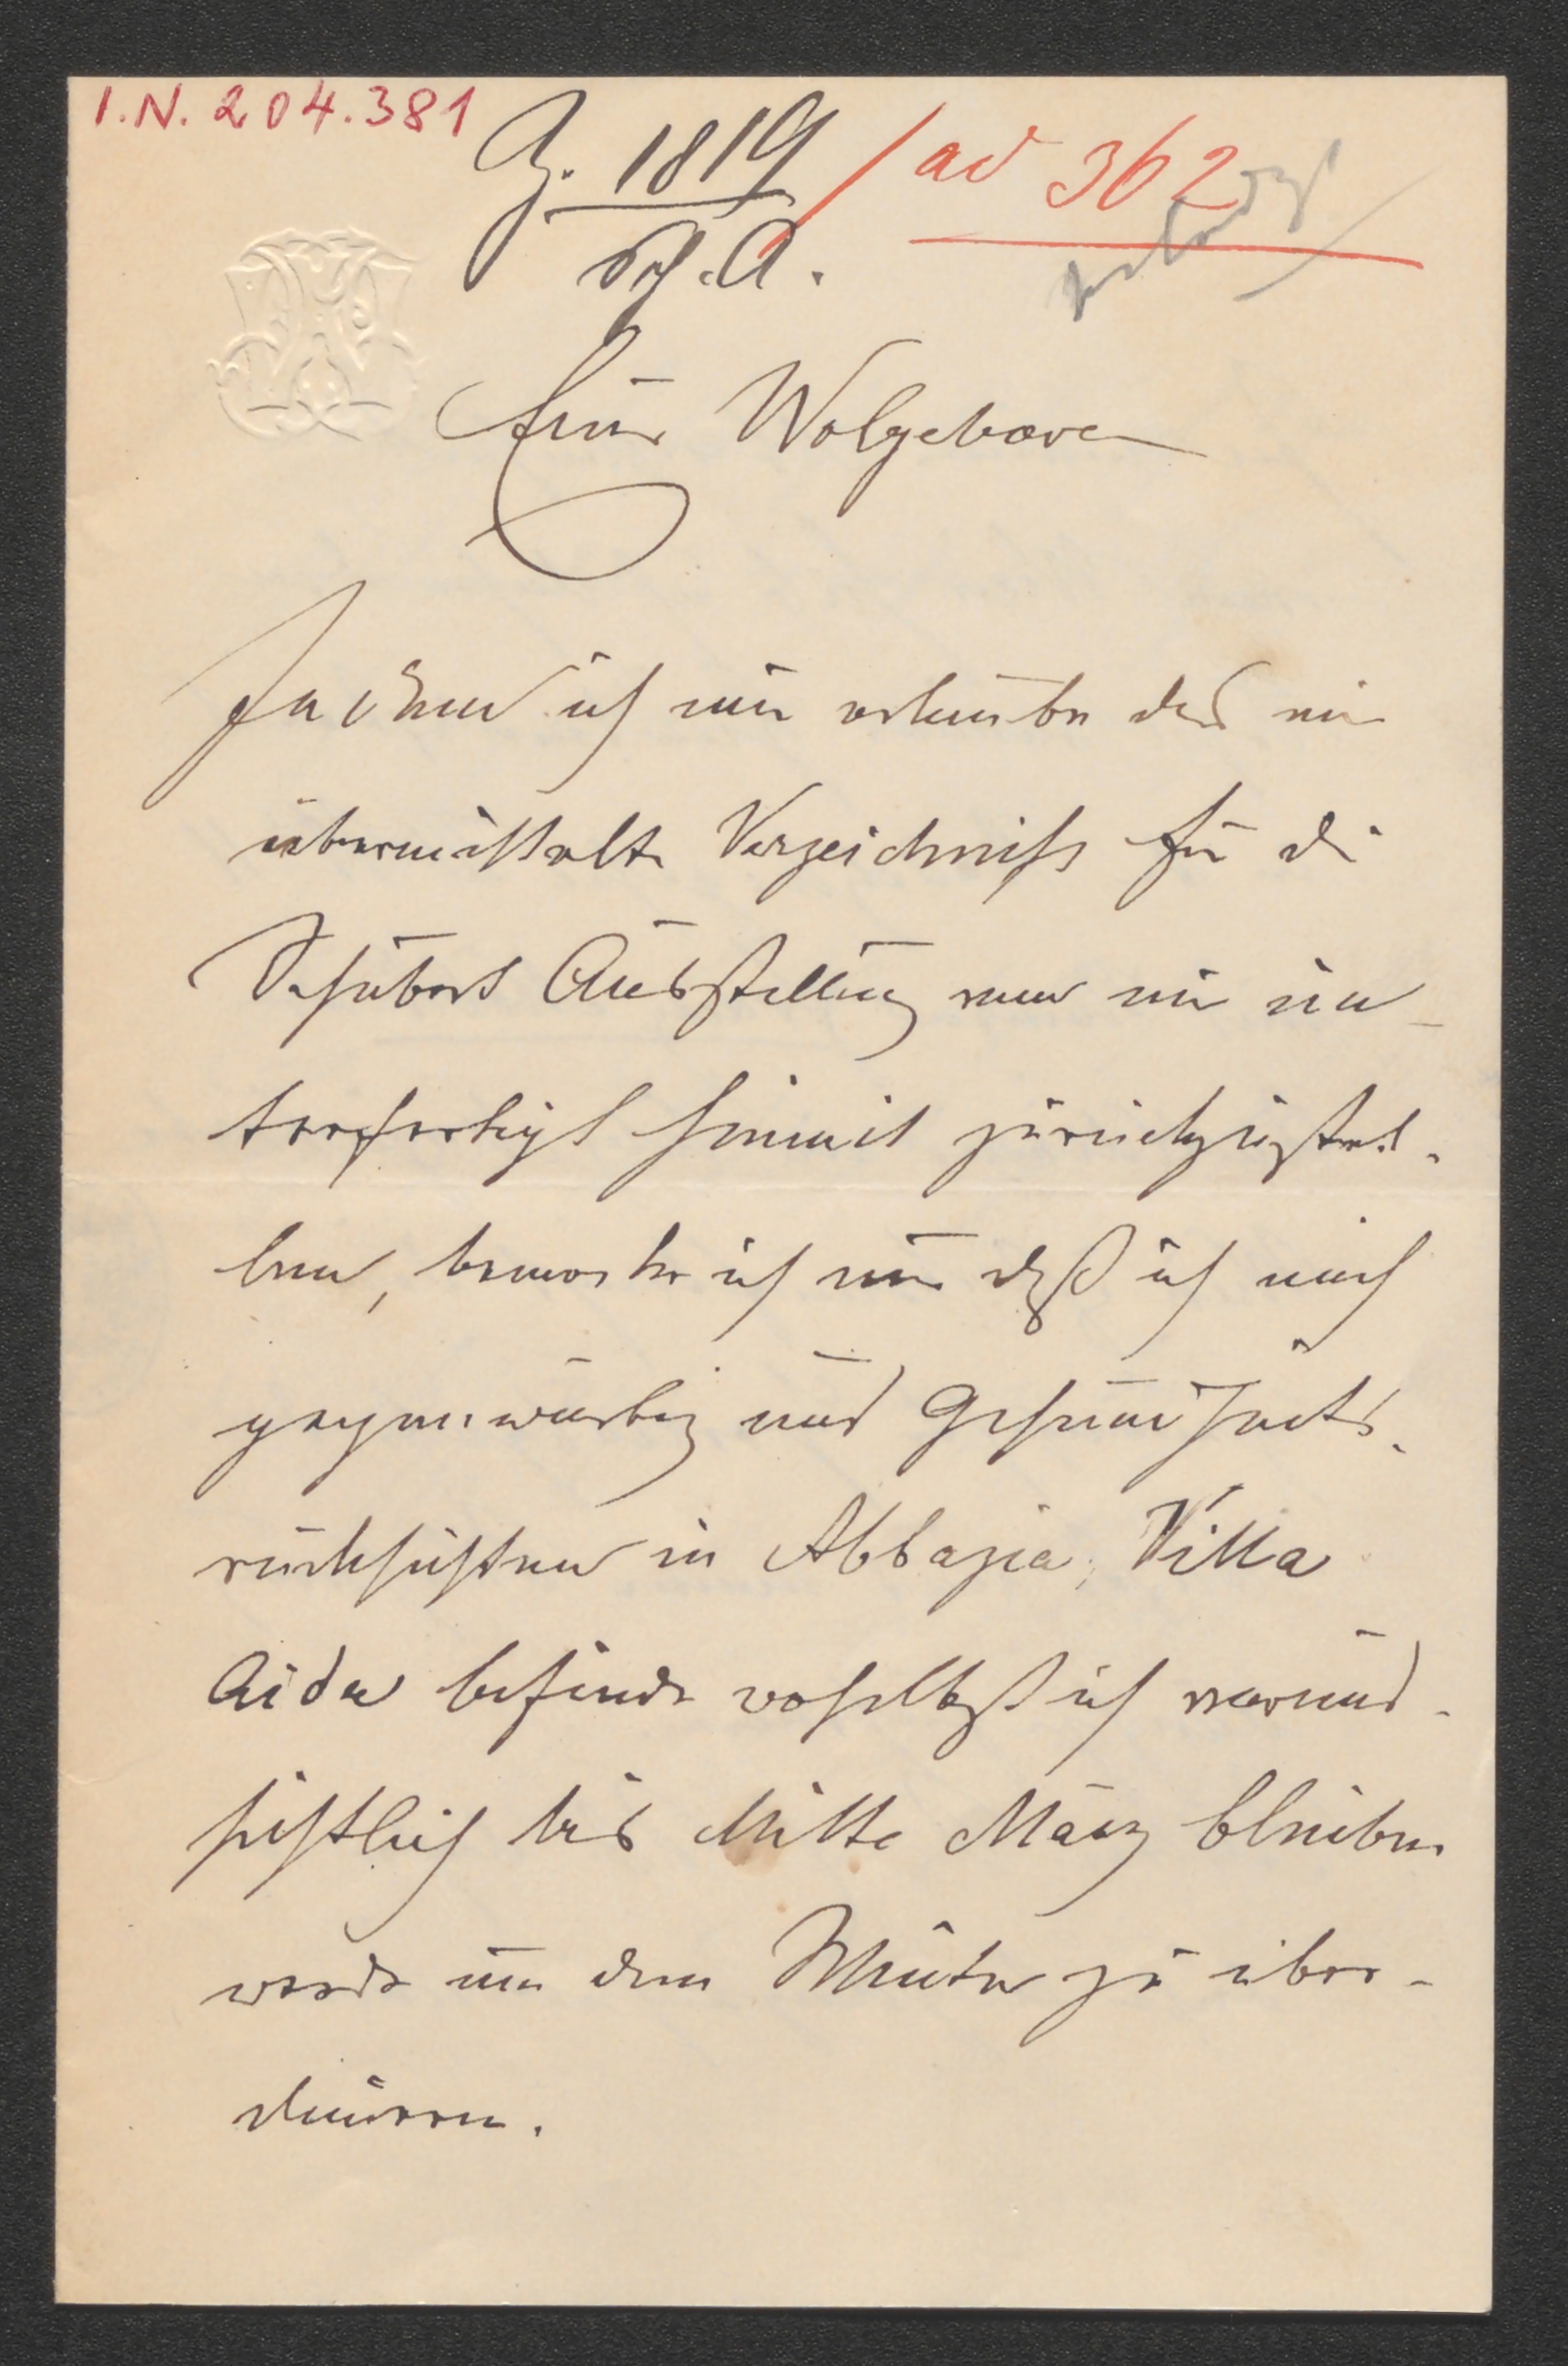 I.N. 204.381
Z. 1819 / ad 362
Sch.A.
Euer Wolgeboren
Indem ich mir erlaube das mir
übermittelte Verzeichniß für die
Schubert Ausstellung von mir un-
terfertigt hiemit zurückzustel-
len, bemerke ich nur daß ich mich
gegenwärtig aus Gesundheits-
rücksichten in Abbazia, Villa
Aida befinde woselbst ich voraus-
sichtlich bis Mitte März bleiben
werde um den Winter zu über-
dauern.